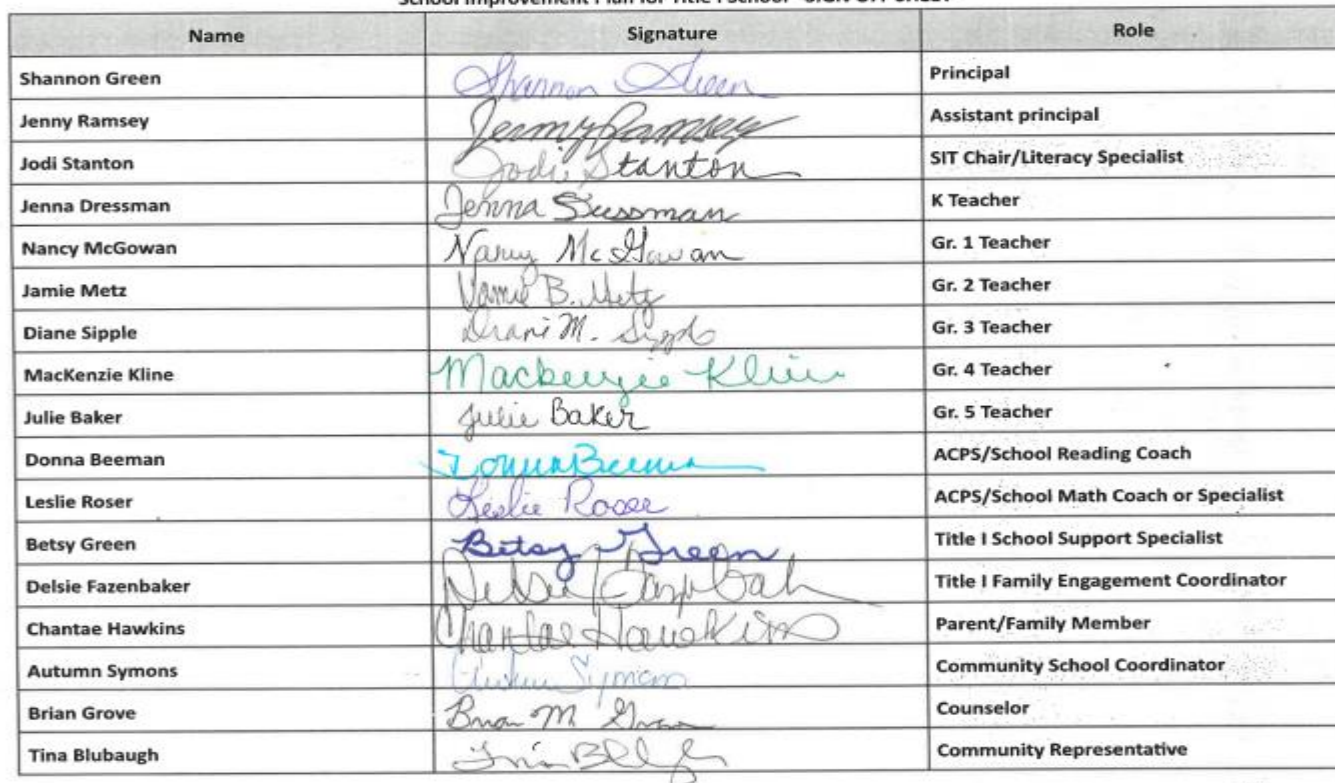 School Improvement Plan for Title I School - SIGN OFF SHEET
Name Signature Role
Shannon Green Shannon Green Principal
Jenny Ramsey Jenny Ramsey Assistant principal
Jodi Stanton Jodi Stanton SIT Chair/Literacy Specialist
Jenna Dressman Jenna K Teacher
Nancy McGowan Nancy McGowan Gr. 1 Teacher
Jamie Metz Jamie B. Metz Gr. 2 Teacher
Diane Sipple Diane M. Gr. 3 Teacher
MacKenzie Kline Mackenzie Kline Gr. 4 Teacher
Julie Baker Julie Baker Gr. 5 Teacher
Donna Beeman Donna Beeman ACPS/School Reading Coach
Leslie Roser Leslie Roser ACPS/School Math Coach or Specialist
Betsy Green Betsy Green Title I School Support Specialist
Delsie Fazenbaker Delsie Title I Family Engagement Coordinator
Chantae Hawkins Chantae Hawkins Parent/Family Member
Autumn Symons Autumn Symons Community School Coordinator
Brian Grove Brian M Grove Counselor
Tina Blubaugh Tina Community Representative